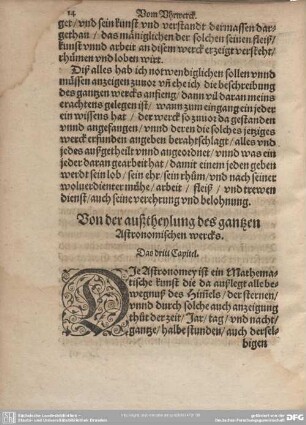 14 Vom Vhrwerck.
get / vnd sein kunst vnd verstandt dermassen dar-
gethan / das mäniglichen der solchen seinen fleiß/
kunst vnnd arbeit an disem werck erzeigt verstehet/
rhümen vnd loben wirt.
Diß alles hab ich notwendiglichen sollen vnnd
müssen anzeigen zuuor vñ ehe ich die beschreibung
des gantzen wercks anfieng / dann vil daran meins
erachtens gelegen ist / wann zum eingang ein jeder
ein wissens hat / der werck so zuuor da gestanden
vnnd angefangen / vnnd deren die solches jetziges
werck erfunden angeben berahtschlagt / alles vnd
jedes außgetheilt vnnd angeordnet / vnnd was ein
jeder daran gearbeit hat / damit einem jeden geben
werdt sein lob / sein ehr / sein rhüm / vnd nach seiner
woluerdienter mühe / arbeit / fleiß / vnd trewen
dienst / auch seine verehrung vnd belohnung.
Von der außtheylung des gantzen
Astronomischen wercks.
Das dritt Capitel.
DIe Astronomey ist ein Mathema-
tische kunst die da außlegt alle be-
wegnuß des Him̃els / der sternen /
vnnd durch solche auch anzeigung
thůt der zeit / Jar / tag / vnd nacht /
gantze / halbe stunden / auch dersel-
bigen